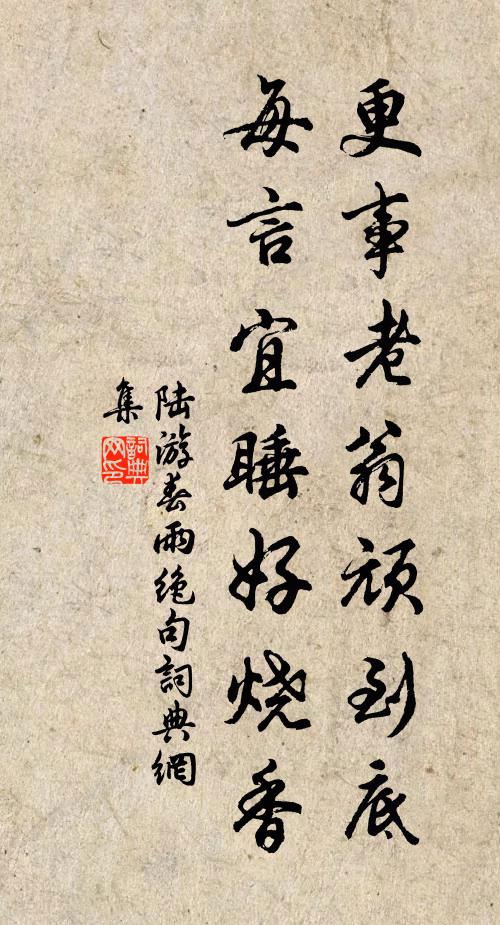 更事老翁頑到底
每言宜睡好烧香
陆游春雨绝句詞典網
集
詞典网印